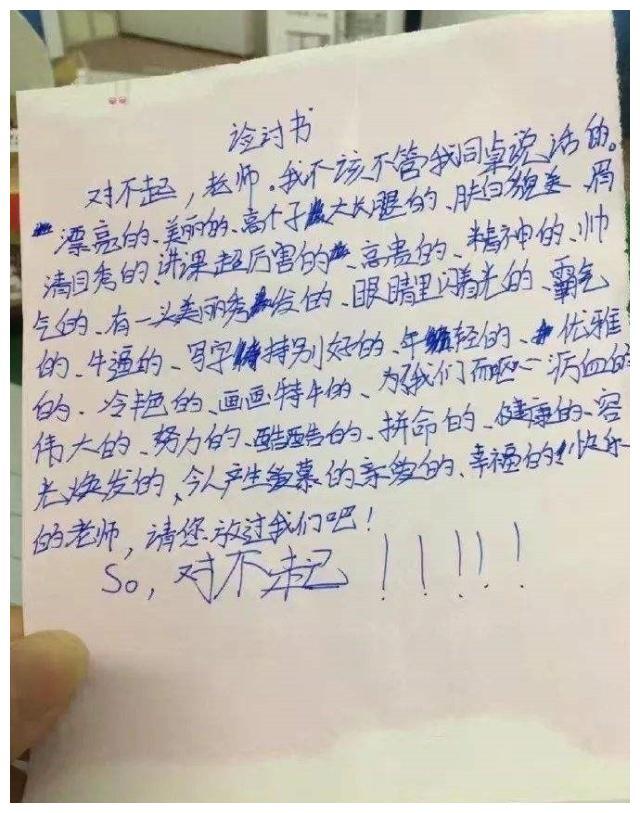 检讨书
对不起，老师。我不该不管我同桌说话的。
漂亮的、美丽的、高个子大长腿的、肤白貌美、眉
清目秀的、讲课超厉害的、高贵的、精神的、帅
气的、有一头美丽秀发的、眼睛里闪着光的、霸气
的、牛逼的、写字特别好的、年轻的、优雅
的、冷艳的、画画特牛的、为了我们而呕心沥血的
伟大的、努力的、酷酷的、拼命的、健康的、容
光焕发的、令人产生羡慕的亲爱的、幸福的！快乐
的老师，请您放过我们吧！
So，对不起！！！！！